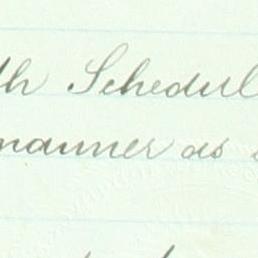 th Schedul
manner as